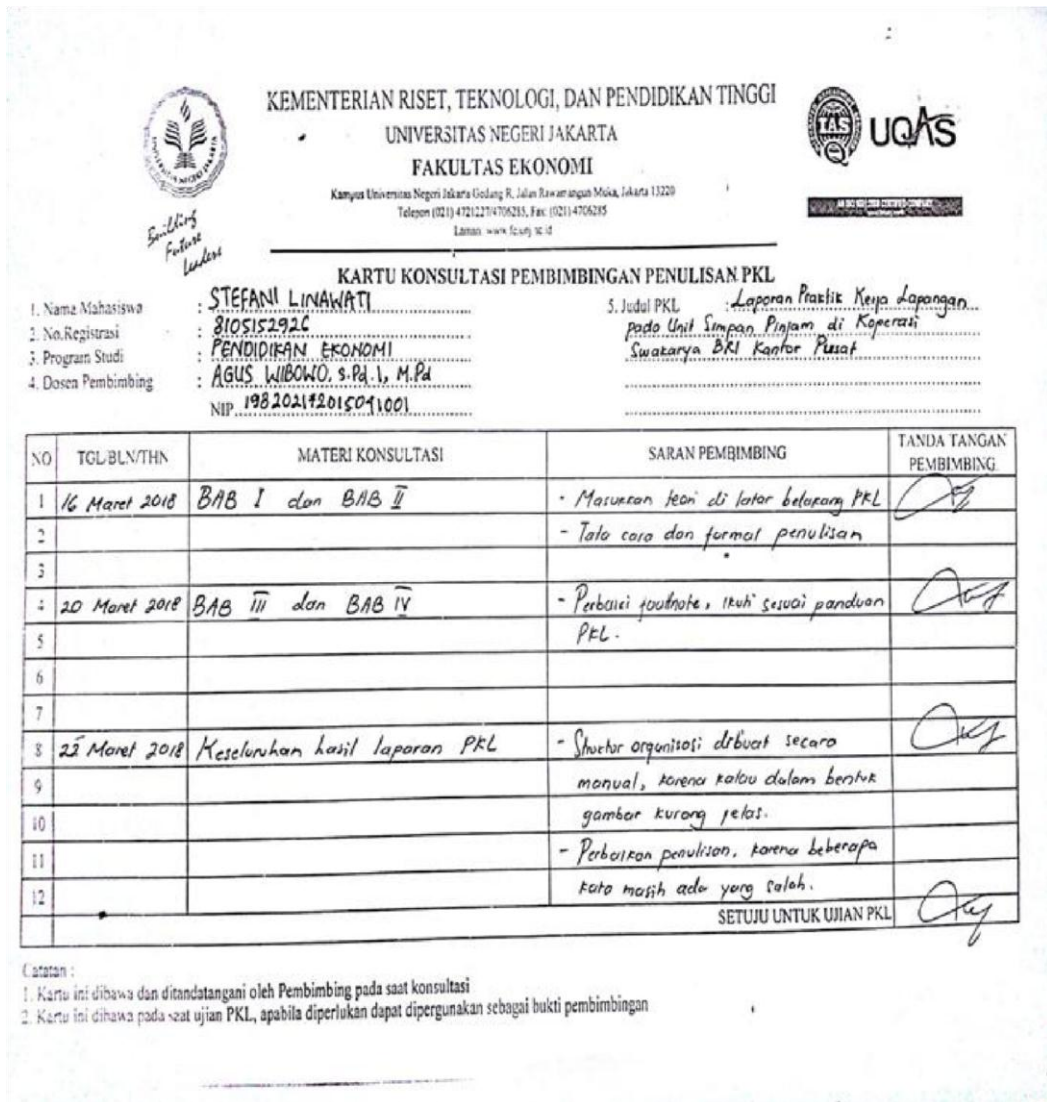 KEMENTERIAN RISET, TEKNOLOGI, DAN PENDIDIKAN TINGGI
UNIVERSITAS NEGERI JAKARTA
FAKULTAS EKONOMI
Kampus Universitas Negeri Jakarta Gedung R, Jalan Rawamangun Muka, Jakarta 13220
Telepon (021) 4721227/4706285, Fax: (021) 4706285
Laman: www.fe.unj.ac.id
Building
Future
Leaders
IAS
UQAS
KARTU KONSULTASI PEMBIMBINGAN PENULISAN PKL
1. Nama Mahasiswa : STEFANI LINAWATI
2. No.Registrasi : 8105152926
3. Program Studi : PENDIDIKAN EKONOMI
4. Dosen Pembimbing : AGUS WIBOWO, S.Pd.I, M.Pd
NIP 198202172015041001
5. Judul PKL : Laporan Praktik Kerja Lapangan
pada Unit Simpan Pinjam di Koperasi
Swakarya BRI Kantor Pusat
NO TGL/BLN/THN MATERI KONSULTASI SARAN PEMBIMBING TANDA TANGAN PEMBIMBING
1 16 Maret 2018 BAB I dan BAB II - Masukkan teori di latar belakang PKL
2 - Tata cara dan format penulisan
3
4 20 Maret 2018 BAB III dan BAB IV - Perbaiki footnote, ikuti sesuai panduan
5 PKL.
6
7
8 22 Maret 2018 Keseluruhan hasil laporan PKL - Struktur organisasi dibuat secara
9 manual, karena kalau dalam bentuk
10 gambar kurang jelas.
11 - Perbaikan penulisan, karena beberapa
12 kata masih ada yang salah.
SETUJU UNTUK UJIAN PKL
Catatan :
1. Kartu ini dibawa dan ditandatangani oleh Pembimbing pada saat konsultasi
2. Kartu ini dibawa pada saat ujian PKL, apabila diperlukan dapat dipergunakan sebagai bukti pembimbingan